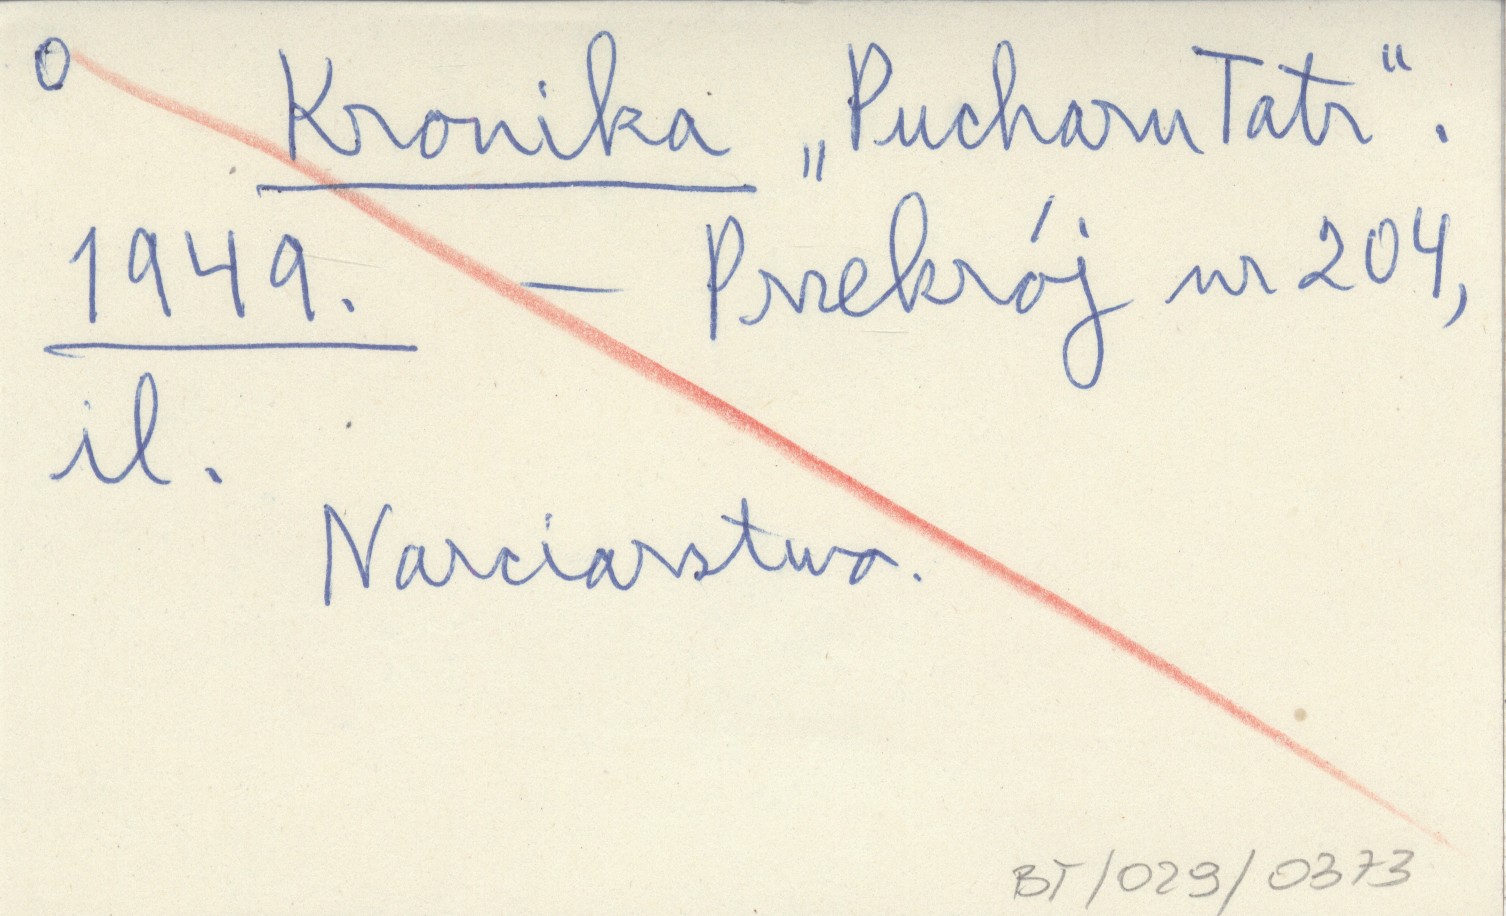 O Kronika „Pucharu Tatr“.
1949. — Przekrój nr 204,
il.
Narciarstwo.
BT/029/0373